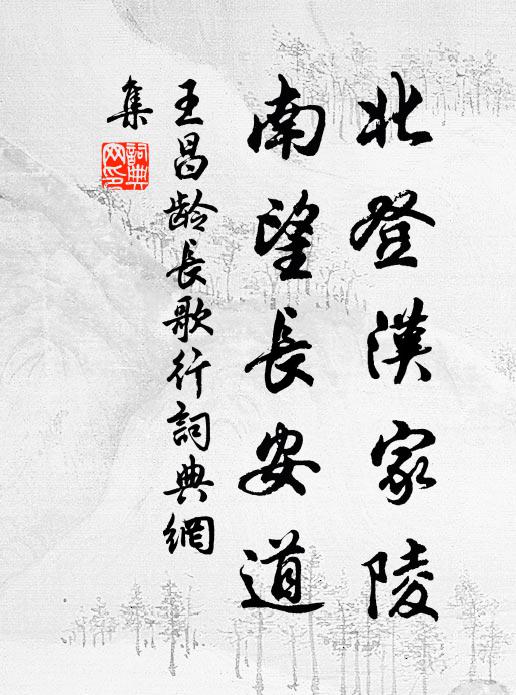 北登漢家陵
南望長安道
王昌龄長歌行詞典網
集
詞典
网印